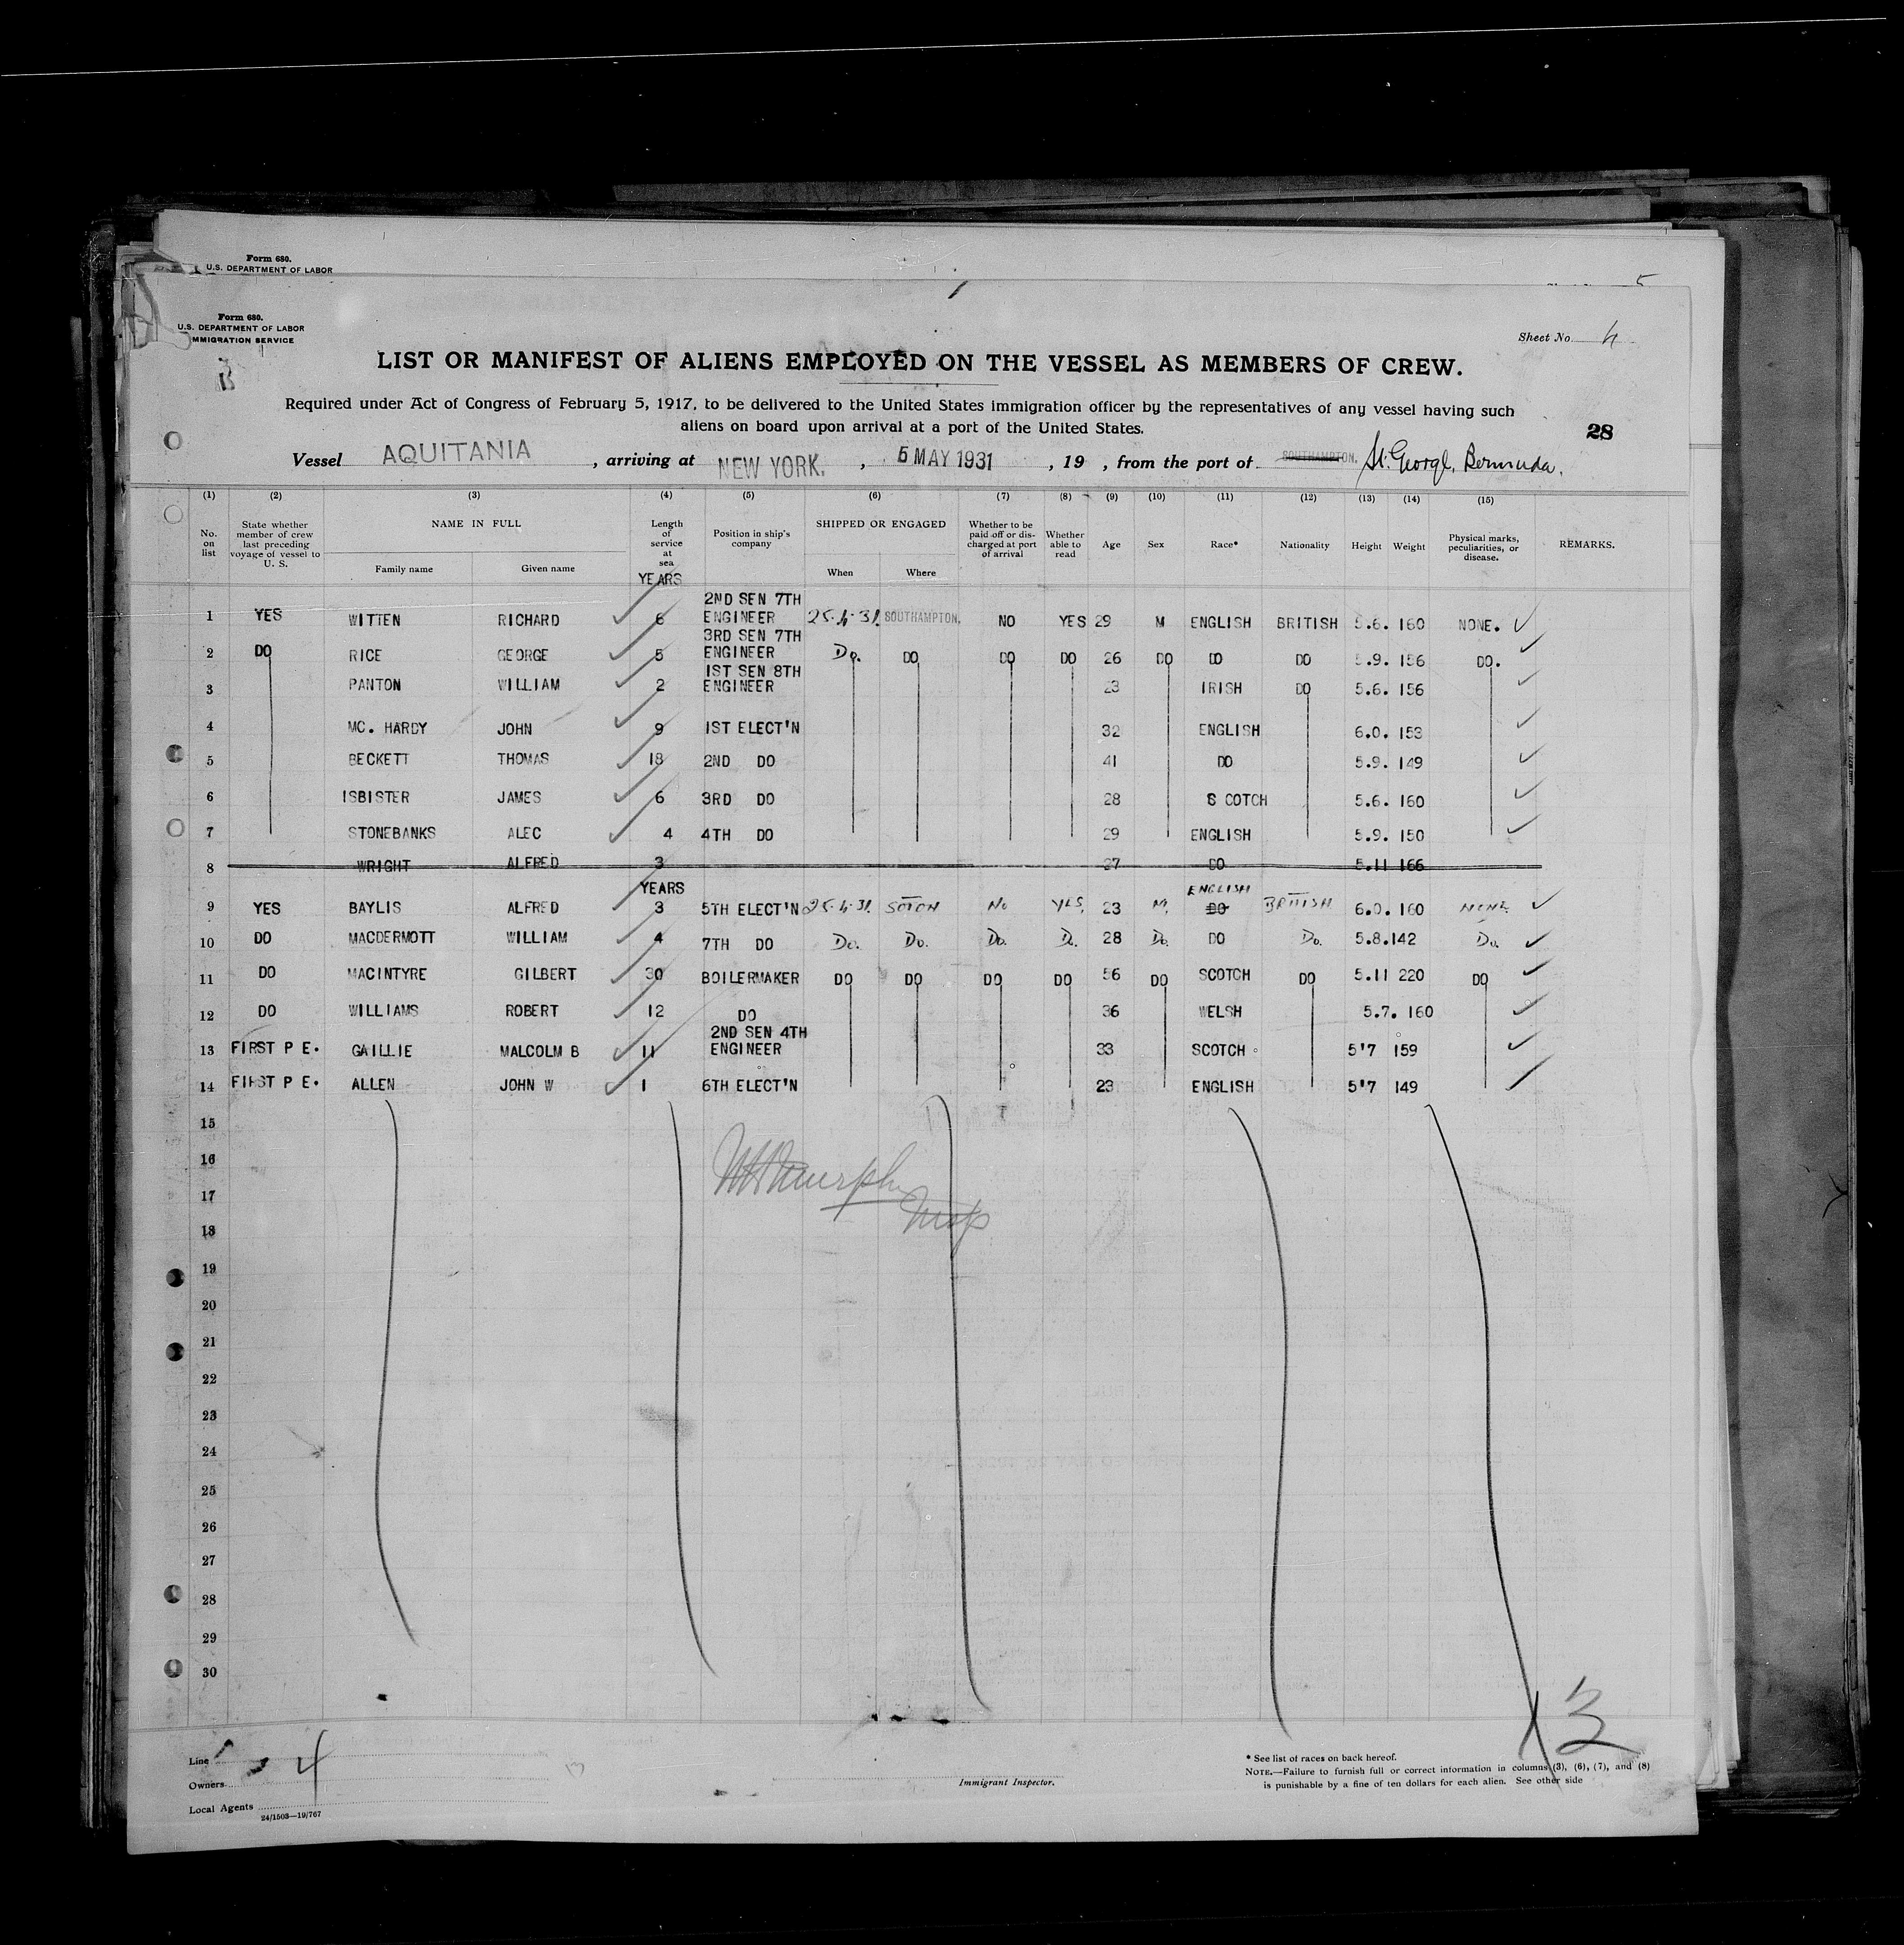 Form 680.
U.S. DEPARTMENT OF LABOR
5
Form 680.
U.S. DEPARTMENT OF LABOR
IMMIGRATION SERVICE
Sheet No. 4
LIST OR MANIFEST OF ALIENS EMPLOYED ON THE VESSEL AS MEMBERS OF CREW.
Required under Act of Congress of February 5, 1917, to be delivered to the United States immigration officer by the representatives of any vessel having such
aliens on board upon arrival at a port of the United States.
28
Vessel AQUITANIA , arriving at NEW YORK. , 5 MAY 1931 , 19 , from the port of SOUTHAMPTON. St. George, Bermuda.
(1) (2) (3) (4) (5) (6) (7) (8) (9) (10) (11) (12) (13) (14) (15)
No. on list State whether member of crew last preceding voyage of vessel to U. S. NAME IN FULL Family name Given name Length of service at sea Position in ship's company SHIPPED OR ENGAGED When Where Whether to be paid off or discharged at port of arrival Whether able to read Age Sex Race* Nationality Height Weight Physical marks, peculiarities, or disease. REMARKS.
YEARS
1 YES WITTEN RICHARD 6 2ND SEN 7TH ENGINEER 25.4.31. SOUTHAMPTON. NO YES 29 M ENGLISH BRITISH 5.6. 160 NONE.
2 DO RICE GEORGE 5 3RD SEN 7TH ENGINEER Do. DO DO DO 26 DO DO DO 5.9. 156 DO.
3 PANTON WILLIAM 2 1ST SEN 8TH ENGINEER 23 IRISH DO 5.6. 156
4 MC. HARDY JOHN 9 1ST ELECT'N 32 ENGLISH 6.0. 153
5 BECKETT THOMAS 18 2ND DO 41 DO 5.9. 149
6 ISBISTER JAMES 6 3RD DO 28 S COTCH 5.6. 160
7 STONEBANKS ALEC 4 4TH DO 29 ENGLISH 5.9. 150
8 WRIGHT ALFRED 3 27 DO 5.11 166
YEARS ENGLISH
9 YES BAYLIS ALFRED 3 5TH ELECT'N 25.4.31. SOTON No YES. 23 M. DO BRITISH 6.0. 160 NONE
10 DO MACDERMOTT WILLIAM 4 7TH DO Do. Do. Do. D. 28 Do. DO Do. 5.8.142 Do.
11 DO MACINTYRE GILBERT 30 BOILERMAKER DO DO DO DO 56 DO SCOTCH DO 5.11 220 DO
12 DO WILLIAMS ROBERT 12 DO 36 WELSH 5.7. 160
13 FIRST P E. GAILLIE MALCOLM B 11 2ND SEN 4TH ENGINEER 33 SCOTCH 5'7 159
14 FIRST P E. ALLEN JOHN W 1 6TH ELECT'N 23 ENGLISH 5'7 149
15
16
17
18
19
20
21
22
23
24
25
26
27
28
29
30
13
Line
4
Owners
Local Agents
24/1503—19/767
Immigrant Inspector.
* See list of races on back hereof.
NOTE.—Failure to furnish full or correct information in columns (3), (6), (7), and (8)
is punishable by a fine of ten dollars for each alien. See other side